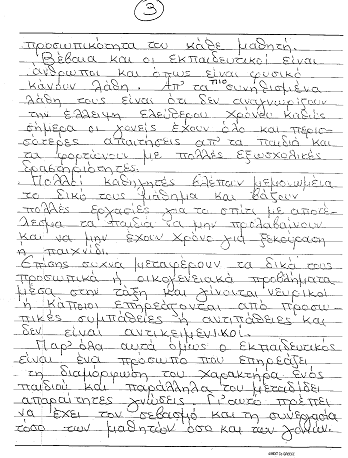 3
προσωπικότητα του κάθε μαθητή.
Βέβαια και οι εκπαιδευτικοί είναι
άνθρωποι και όπως είναι φυσικό
κάνουν λάθη. Απ' τα πιο συνηθισμένα
λάθη τους είναι ότι δεν αναγνωρίζουν
την έλλειψη ελεύθερου χρόνου καθώς
σήμερα οι γονείς έχουν όλο και περισ-
σότερες απαιτήσεις απ' τα παιδιά και
τα φορτώνουν με πολλές εξωσχολικές
δραστηριότητες.
Πολλοί καθηγητές βλέπουν μεμονωμένα
το δικό τους μάθημα και βάζουν
πολλές εργασίες για το σπίτι με αποτέ-
λεσμα τα παιδιά να μην προλαβαίνουν
και να μην έχουν χρόνο για ξεκούραση
ή παιχνίδι.
Επίσης συχνά μεταφέρουν τα δικά τους
προσωπικά ή οικογενειακά προβλήματα
μέσα στην τάξη και γίνονται νευρικοί
ή κάποιοι επηρεάζονται από προσω-
πικές συμπάθειες ή αντιπάθειες και
δεν είναι αντικειμενικοί.
Παρ' όλα αυτά όμως ο εκπαιδευτικός
είναι ένα πρόσωπο που επηρεάζει
τη διαμόρφωση του χαρακτήρα ενός
παιδιού και παράλληλα του μεταδίδει
απαραίτητες γνώσεις. Γι' αυτό πρέπει
να έχει τον σεβασμό και τη συνεργασία
τόσο των μαθητών όσο και των γονιών.